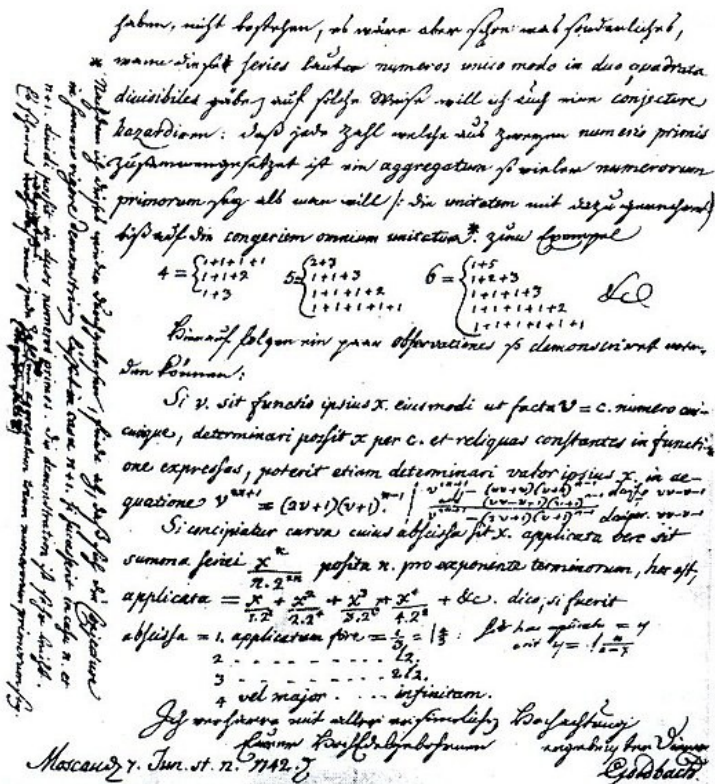 haben, nicht bestehen, es wäre aber schon was sonderliches,
wenn diese series lauter numeros unico modo in duo quadrata
divisibiles gäbe, auf solche Weise will ich auch eine conjecture
hazardiren: daß jede Zahl welche aus zweyen numeris primis
zusammengesetzet ist ein aggregatum so vieler numerorum
primorum sey als man will /: die unitatem mit dazu gerechnet
biß auf die congeriem omnium unitatum * zum Exempel
4 = { 1+1+1+1 5 = { 2+3 6 = { 1+5
1+1+2 1+1+3 1+2+3
1+3 1+1+1+2 1+1+1+3
1+1+1+1+1 1+1+1+1+2
1+1+1+1+1+1 &c
Hierauf folgen ein paar observationes so demonstriret wer-
den können:
Si v. sit functio ipsius x. eiusmodi ut facta v = c. numero cui-
cunque, determinari possit x per c. et reliquas constantes in functi-
one expressas, poterit etiam determinari valor ipsius x. in ae-
quatione v^{2n+1} = (2v+1)(v+1)^{n-1}
Si concipiatur curva cuius abscissa sit x. applicata vero sit
summa seriei x^n / n.2^{2n} posita n. pro exponente terminorum, hoc est,
applicata = x/1.2^2 + x^2/2.2^4 + x^3/3.2^6 + x^4/4.2^8 + &c. dico, si fuerit
abscissa = 1. applicatam fore = l 4/3
2 . . . . . . . l2.
3 . . . . . . . 2l2.
4 vel major . . . . infinitam.
Ich verharre mit aller ersinnlichen Hochachtung
Eurer Hochedelgebohrnen ergebenster Diener
Moscau d. 7. Jun. st. n. 1742. Goldbach.
* Nachdem ich dieses wieder durchgelesen, finde ich, daß sich die conjecture
in summo rigore demonstriren lässet in casu n+1. si successerit in casu n. et
n+1. dividi possit in duos numeros primos. Die demonstration ist sehr leicht.
Es scheinet wenigstens, daß eine jede Zahl, die größer ist als 2, ein aggregatum trium numerorum primorum sey.